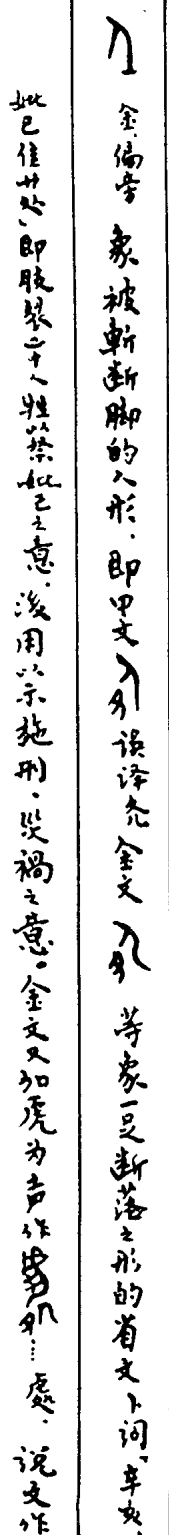 金偏旁 象被斩断脚的人形．即甲文 误译允 金文 等象一足断落之形的省文卜词“辛亥，
妣己隹廿处”即肢裂二十人牲以祭妣己之意．后用以示施刑．災禍之意。金文又加虎为声作……處．说文作